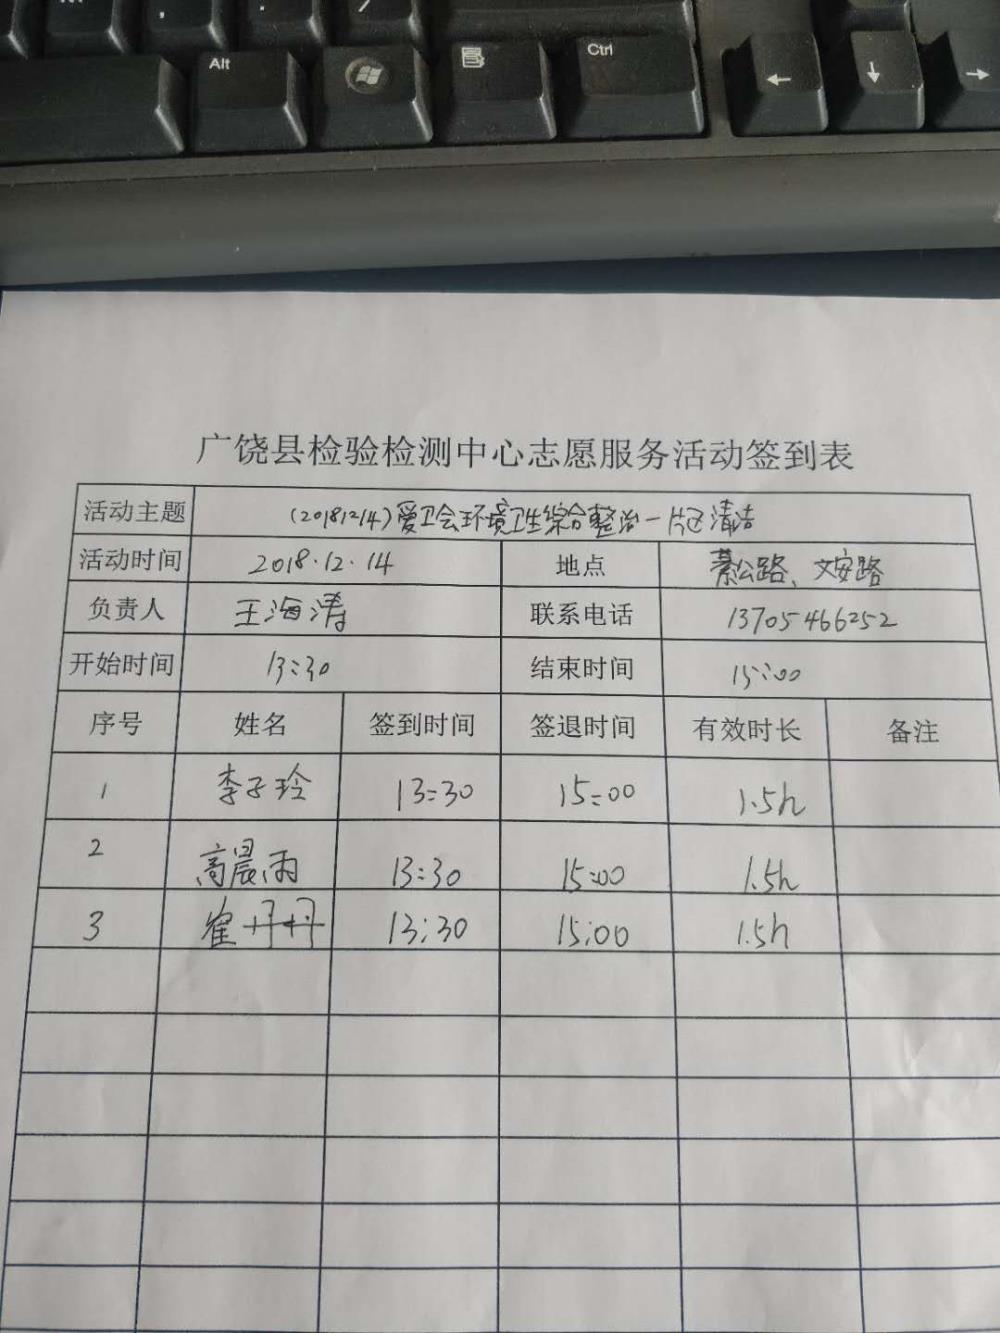 Alt
Ctrl
广饶县检验检测中心志愿服务活动签到表
活动主题 (20181214)爱卫会环境卫生综合整治一片区清洁
活动时间 2018.12.14 地点 綦公路、文安路
负责人 王海涛 联系电话 13705466252
开始时间 13:30 结束时间 15:00
序号 姓名 签到时间 签退时间 有效时长 备注
1 李子玲 13:30 15:00 1.5h
2 高晨雨 13:30 15:00 1.5h
3 崔丹丹 13:30 15:00 1.5h